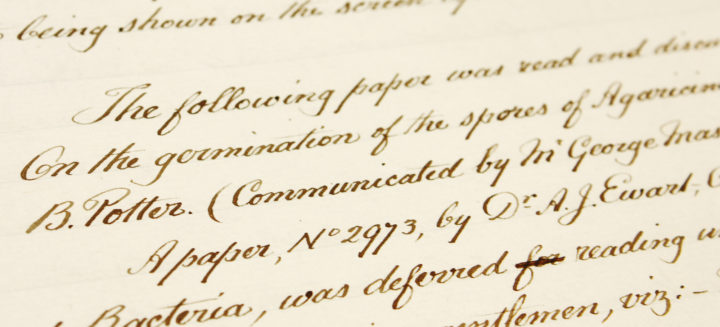 being shown on the screen
The following paper was read and
On the germination of the spores of
B. Potter. (Communicated by Mr George
A paper, No 2973, by Dr A. J. Ewart,
Bacteria, was deferred for reading
viz:-